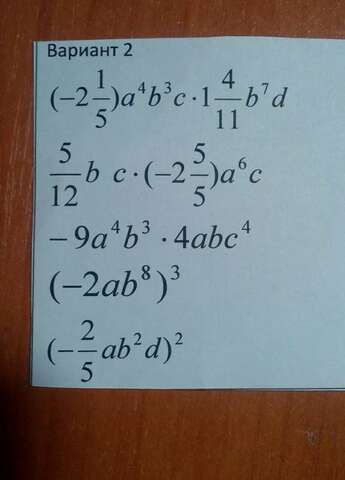 Вариант 2
(-2 1/5)a⁴b³c·1 4/11 b⁷d
5/12 b c·(-2 5/5)a⁶c
-9a⁴b³·4abc⁴
(-2ab⁸)³
(-2/5 ab²d)²